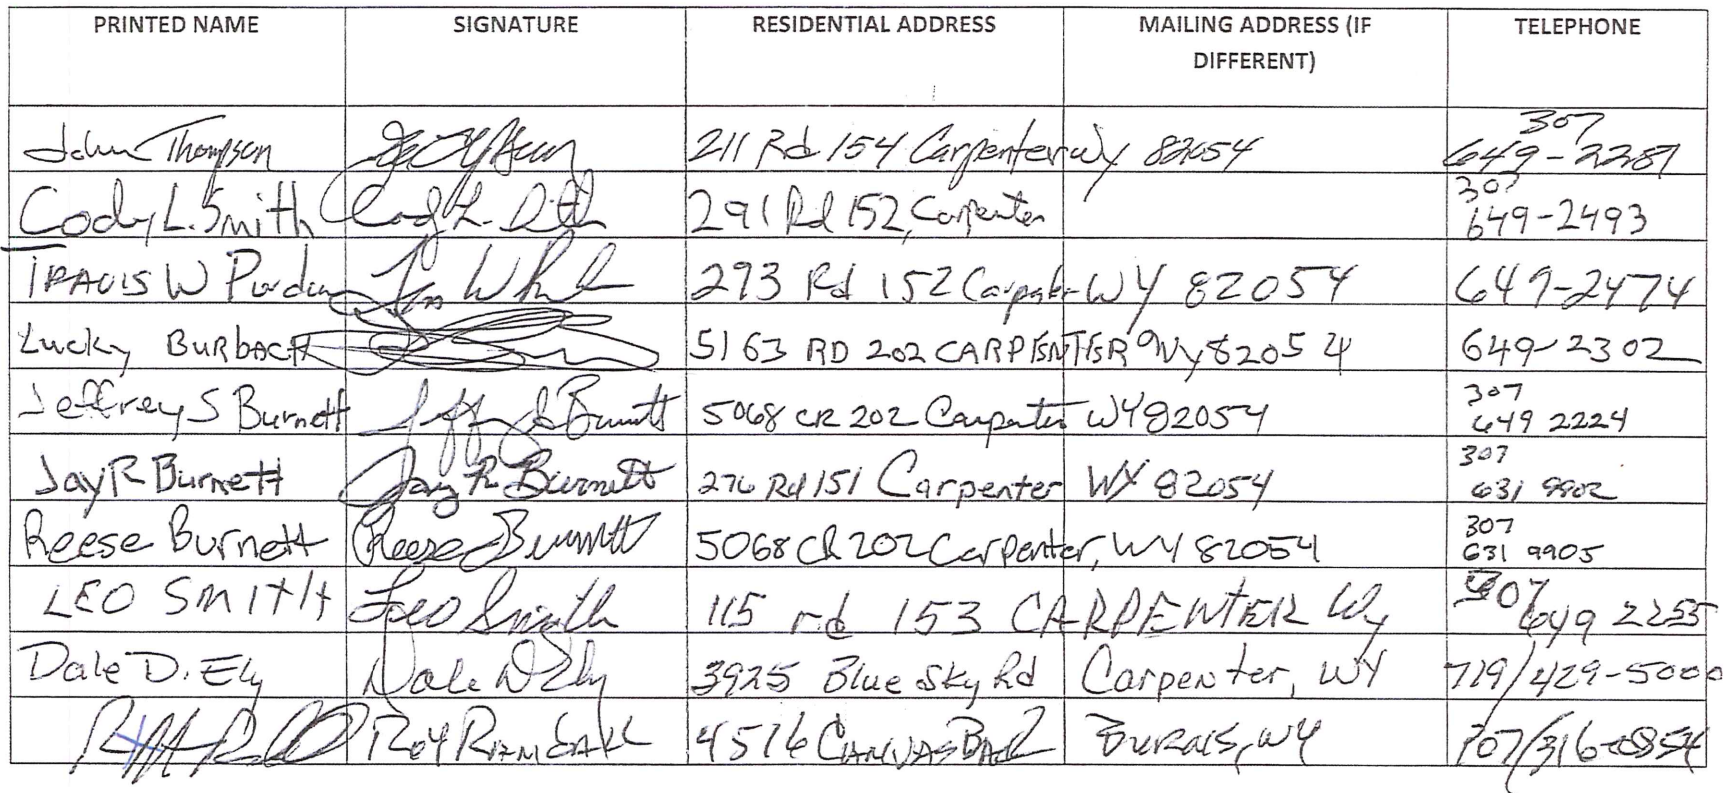 PRINTED NAME SIGNATURE RESIDENTIAL ADDRESS MAILING ADDRESS (IF TELEPHONE
DIFFERENT)
307
John Thompson 211 Rd 154 Carpenter Wy 82054 649-2287
307
Cody L. Smith Cody L. Smith 291 Rd 152, Carpenter 649-2493
TRAVIS W Purdum 293 Rd 152 Carpenter WY 82054 649-2474
Lucky BURBACH 5163 RD 202 CARPENTER Wy 82054 649-2302
307
Jeffrey S Burnett Jeffrey S Burnett 5068 CR 202 Carpenter WY 82054 649 2224
307
Jay R Burnett Jay R Burnett 276 Rd 151 Carpenter WY 82054 631 9902
307
Reese Burnett Reese Burnett 5068 CR 202 Carpenter, WY 82054 631 9905
307
LEO SMITH Leo Smith 115 rd 153 CARPENTER Wy 649 2255
Dale D. Ely Dale D Ely 3925 Blue Sky Rd Carpenter, WY 719/429-5000
4516 CANVASBACK BURNS, WY 307/316-0854